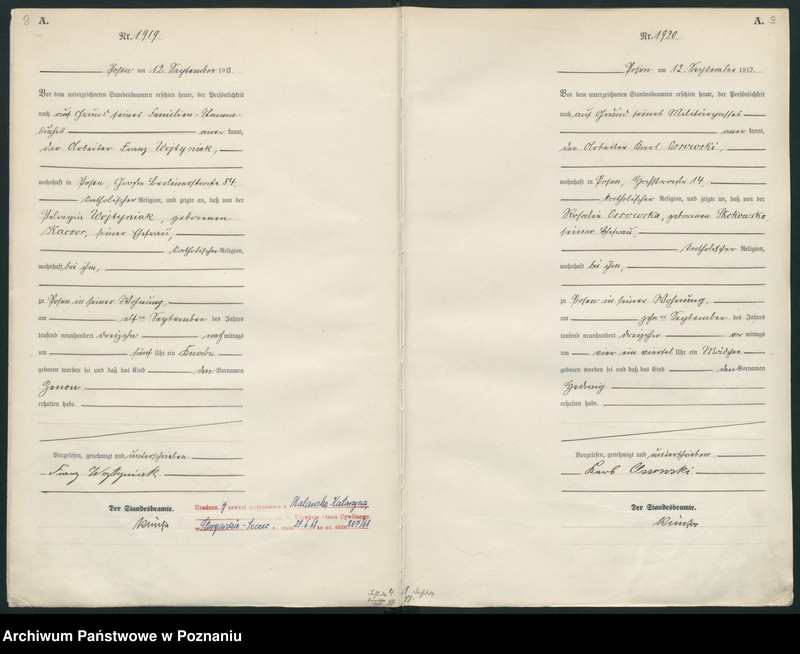 8 A.
Nr. 1919.
Posen am 12 September 1913.
Vor dem unterzeichneten Standesbeamten erschien heute, der Persönlichkeit
nach auf Grund seines Familien-Stamm-
buches anerkannt,
der Arbeiter Franz Wojtyniak,
wohnhaft in Posen, Große Berlinerstraße 84,
katholischer Religion, und zeigte an, daß von der
Pelagia Wojtyniak, geborenen
Kaczor, seiner Ehefrau,
katholischer Religion,
wohnhaft bei ihm,
zu Posen in seiner Wohnung,
am elften September des Jahres
tausend neunhundert dreizehn nachmittags
um fünf Uhr ein Knabe
geboren worden sei und daß das Kind den Vornamen
Zenon
erhalten habe.
Vorgelesen, genehmigt und unterschrieben
Franz Wojtyniak
Der Standesbeamte.
Urodzon y zawarł małżeństwo z Malawska Katarzyna
w Urzędzie Stanu Cywilnego
w Stargardzie-Szczec. dnia 29.6.68 Nr. akt. 207/68
A. 9
Nr. 1920.
Posen am 12 September 1913.
Vor dem unterzeichneten Standesbeamten erschien heute, der Persönlichkeit
nach auf Grund seines Militärpasses
anerkannt,
der Arbeiter Karl Ossowski,
wohnhaft in Posen, 14,
katholischer Religion, und zeigte an, daß von der
Rosalie Ossowska, geborenen Skokowska,
seiner Ehefrau,
katholischer Religion,
wohnhaft bei ihm,
zu Posen in seiner Wohnung,
am zehnten September des Jahres
tausend neunhundert dreizehn vormittags
um vier ein viertel Uhr ein Mädchen
geboren worden sei und daß das Kind den Vornamen
Hedwig
erhalten habe.
Vorgelesen, genehmigt und unterschrieben
Karl Ossowski
Der Standesbeamte.
Archiwum Państwowe w Poznaniu